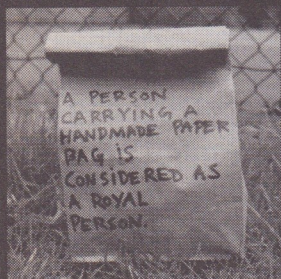 A PERSON
CARRYING A
HANDMADE PAPER
BAG IS
CONSIDERED AS
A ROYAL
PERSON.